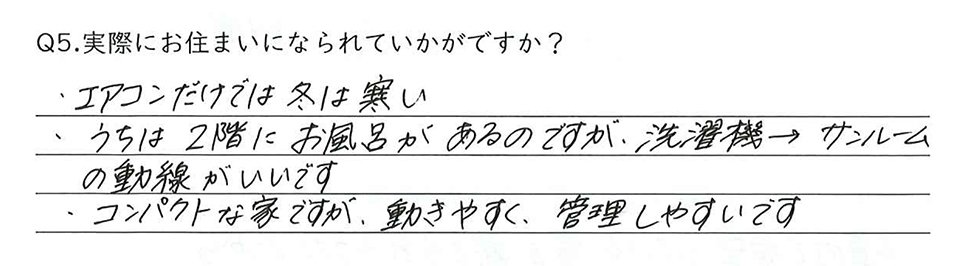 Q5.実際にお住まいになられていかがですか？
・エアコンだけでは冬は寒い
・うちは2階にお風呂があるのですが、洗濯機→サンルーム
の動線がいいです
・コンパクトな家ですが、動きやすく、管理しやすいです